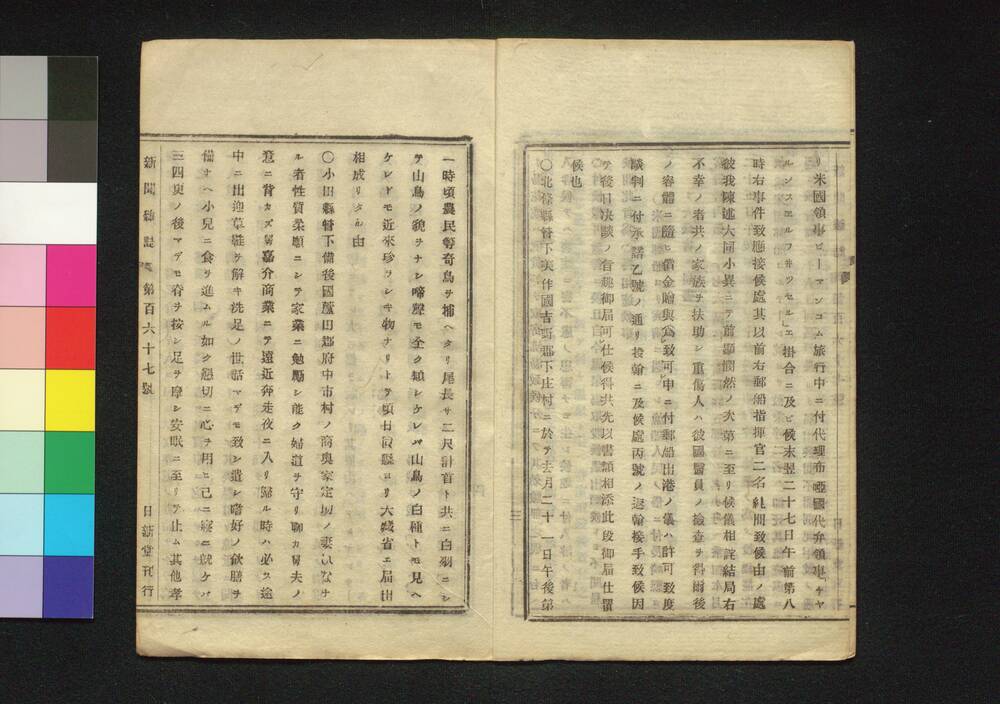 リ米國領事ビーマンコム旅行中ニ付代理布哇國代弁領事「チヤ
ルンスエルフ井ツセル」エ掛合ニ及ビ候末翌二十七日午前第八
時右事件致應接候處其以前右郵船指揮官二名糺問致候由ノ處
彼我陳述大同小異ニテ前顯憫然ノ次第ニ至リ候儀相詫結局右
不幸ノ者共ノ家族ヲ扶助シ重傷人ハ彼國醫員ノ檢査ヲ得爾後
ノ容體ニ隨ヒ償金贈與為致可申ニ付郵船出港ノ儀ハ許可致度
談判ニ付承諾乙號ノ通リ投翰ニ及候處丙號ノ返翰接手致候因
テ後日决談ノ旨趣御届可仕候得共先以書類相添此段御届仕置
候也
〇北條縣管下美作國吉野郡下庄村ニ於テ去月二十一日午後第
一時頃農民等奇鳥ヲ捕ヘタリ尾長サ二尺計首ト共ニ白羽ニシ
テ山鳥ノ貌ヲナシ啼聲モ全ク類シケレバ山鳥ノ白種トモ見ヘ
ケレドモ近來珍ラシキ物ナリトテ頃日該縣ヨリ大藏省エ届出
相成リタル由
〇小田縣管下備後國蘆田郡府中市村ノ商奥家定切ノ妻いなナ
ル者性質柔順ニシテ家業ニ勉勵シ能ク婦道ヲ守リ聊カ舅夫ノ
意ニ背カズ舅嘉介商業ニテ遠近奔走夜ニ入リ歸ル時ハ必ス途
中ニ出迎草鞋ヲ解キ洗足ノ世話マデモ致シ遣シ嗜好ノ飲膳ヲ
備ナヘ小兒ニ食ヲ進ムル如ク懇切ニ心ヲ用ヒ己ニ寢ニ就ケバ
三四更ノ後マデモ脊ヲ按シ足ヲ摩シ安眠ニ至リテ止ム其他孝
新聞雜誌 第百六十七號 日新堂刊行
三